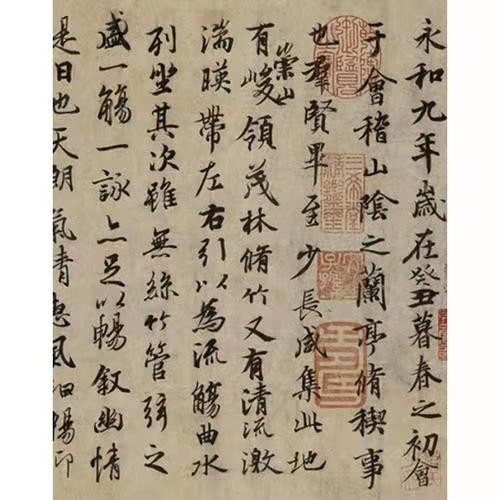 永和九年歲在癸丑暮春之初會
于會稽山陰之蘭亭脩稧事
也羣賢畢至少長咸集此地
有崇山峻領茂林脩竹又有清流激
湍暎帶左右引以為流觴曲水
列坐其次雖無絲竹管弦之
盛一觴一詠亦足以暢敘幽情
是日也天朗氣清惠風和暢仰
三希堂精鑑璽